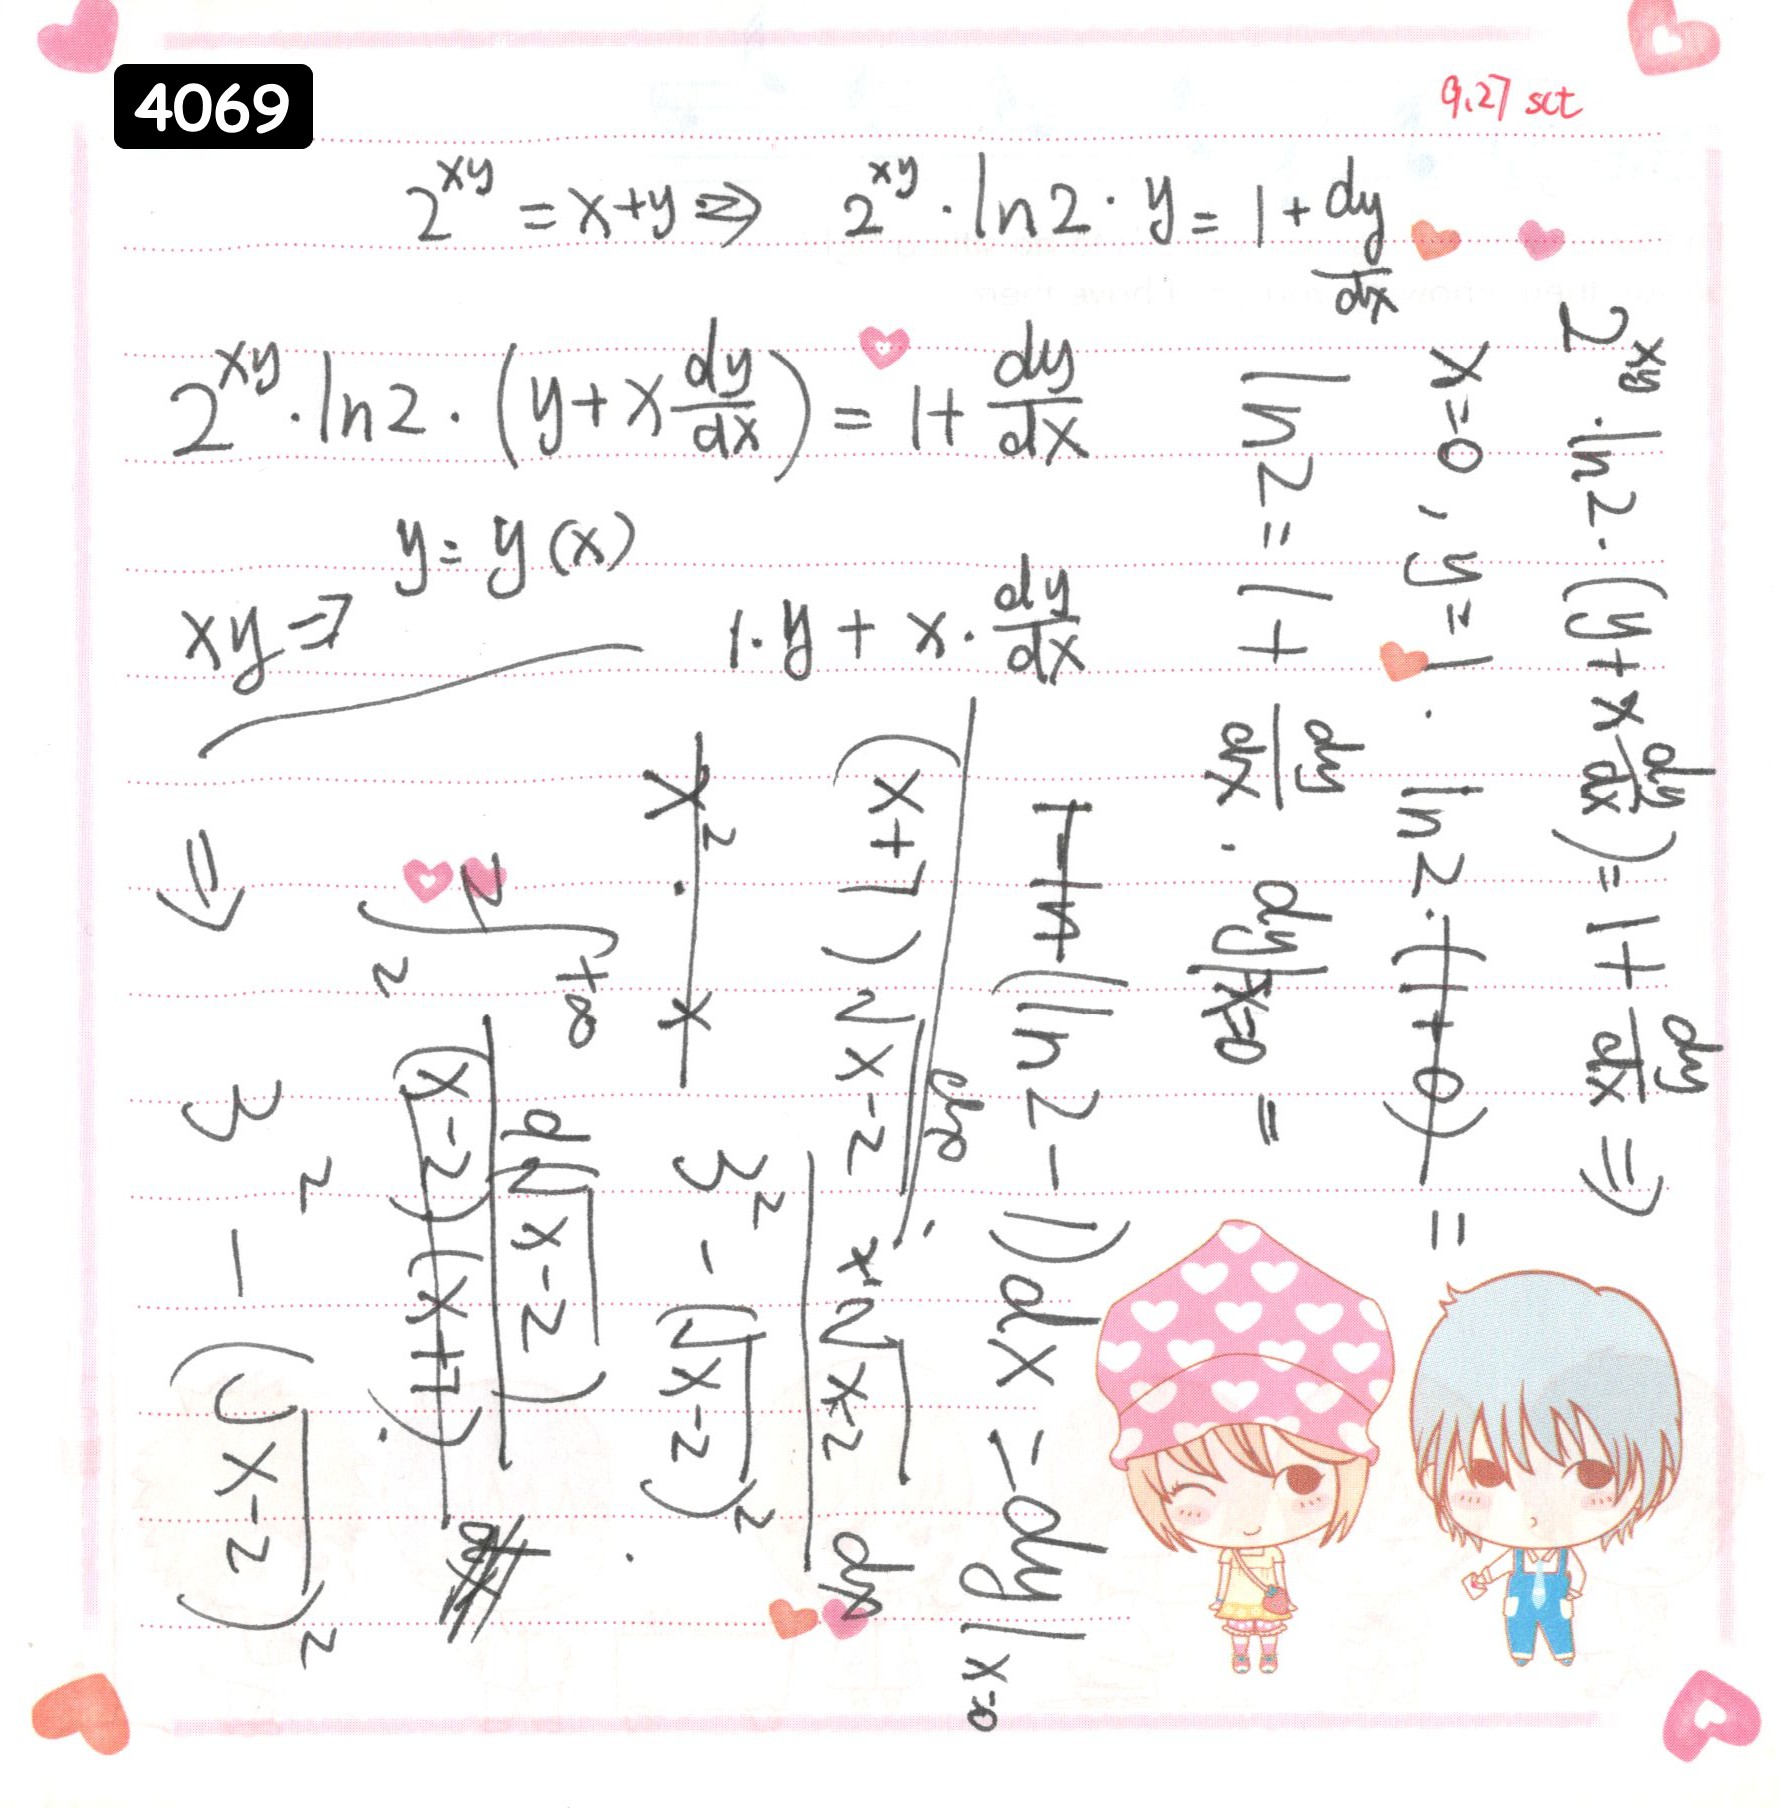 4069
9.27 sct
2^{xy} = x+y ⇒ 2^{xy} · ln2 · y = 1 + dy/dx
2^{xy} · ln2 · (y + x dy/dx) = 1 + dy/dx
y = y(x)
xy ⇒ 1·y + x · dy/dx
2^{xy} · ln2 · (y + x dy/dx) = 1 + dy/dx ⇒
x=0, y=1 · ln2 · (1+0) =
ln2 = 1 + dy/dx · dy|x=0 =
(ln2 - 1) dx = dy|x=0
(x+7)√x-2 dx
x√x-2 dx
3² - (√x-2)²
x² · x
d(√x-2)
(x-2)(x+7)
∫ 2 +∞
2
⇒ 3² - (√x-2)²